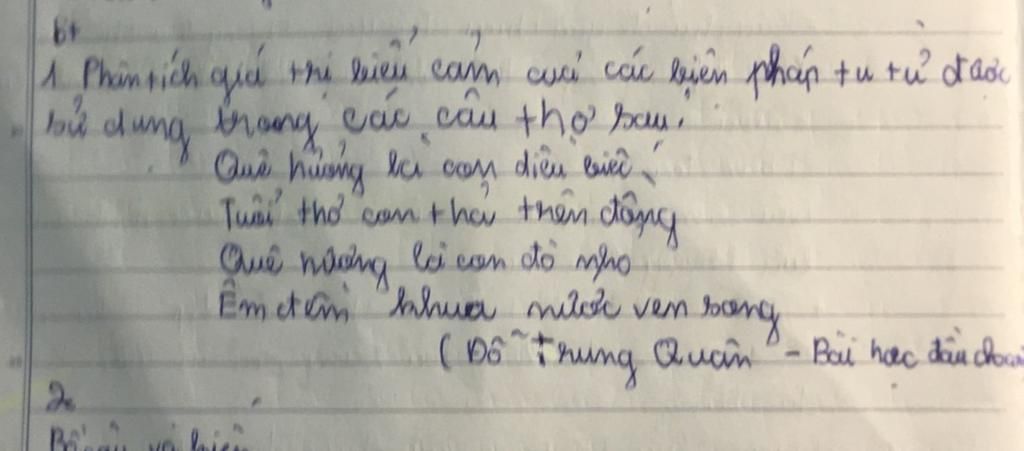 bt
1 Phân tích giá trị biểu cảm của các biện pháp tu từ được
sử dụng trong các câu thơ sau.
Quê hương là con diều biếc
Tuổi thơ con thả trên đồng
Quê hương là con đò nhỏ
Êm đềm khua nước ven sông
(Đỗ Trung Quân - Bài học đầu cho
2.